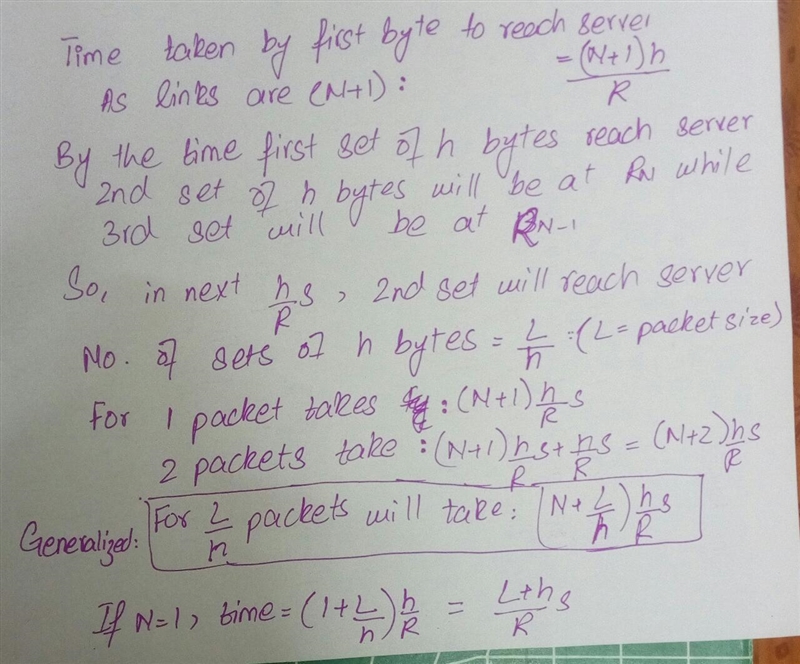 Time taken by first byte to reach server
As links are (N+1) : = (N+1)h/R
By the time first set of h bytes reach server
2nd set of h bytes will be at RN while
3rd set will be at RN-1
So, in next h/R s, 2nd set will reach server
No. of sets of h bytes = L/h :(L = packet size)
For 1 packet takes : (N+1) h/R s
2 packets take : (N+1) h/R s + h/R s = (N+2) h/R s
Generalized: For L/h packets will take: (N + L/h) h/R s
If N=1, time = (1 + L/h) h/R = L+h/R s